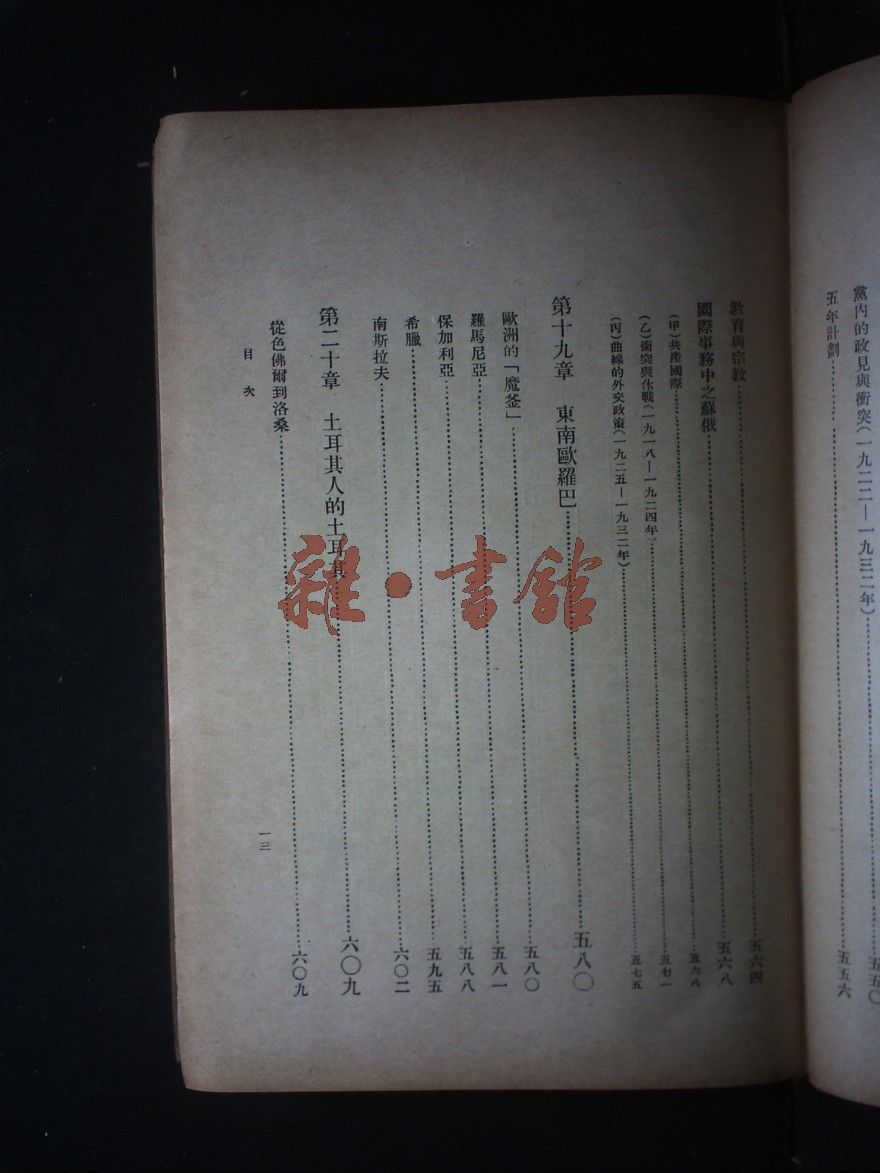 黨內的政見與衝突(一九二二—一九三二年)……五五〇
五年計劃……五五六
教育與宗教……五六四
國際事務中之蘇俄……五六八
(甲)共產國際……五六八
(乙)衝突與休戰(一九一八—一九二四年)……五七一
(丙)曲線的外交政策(一九二五—一九三二年)……五七五
第十九章 東南歐羅巴……五八〇
歐洲的「魔釜」……五八〇
羅馬尼亞……五八一
保加利亞……五八八
希臘……五九五
南斯拉夫……六〇二
第二十章 土耳其人的土耳其……六〇九
從色佛爾到洛桑……六〇九
目次 一三
雜·書館